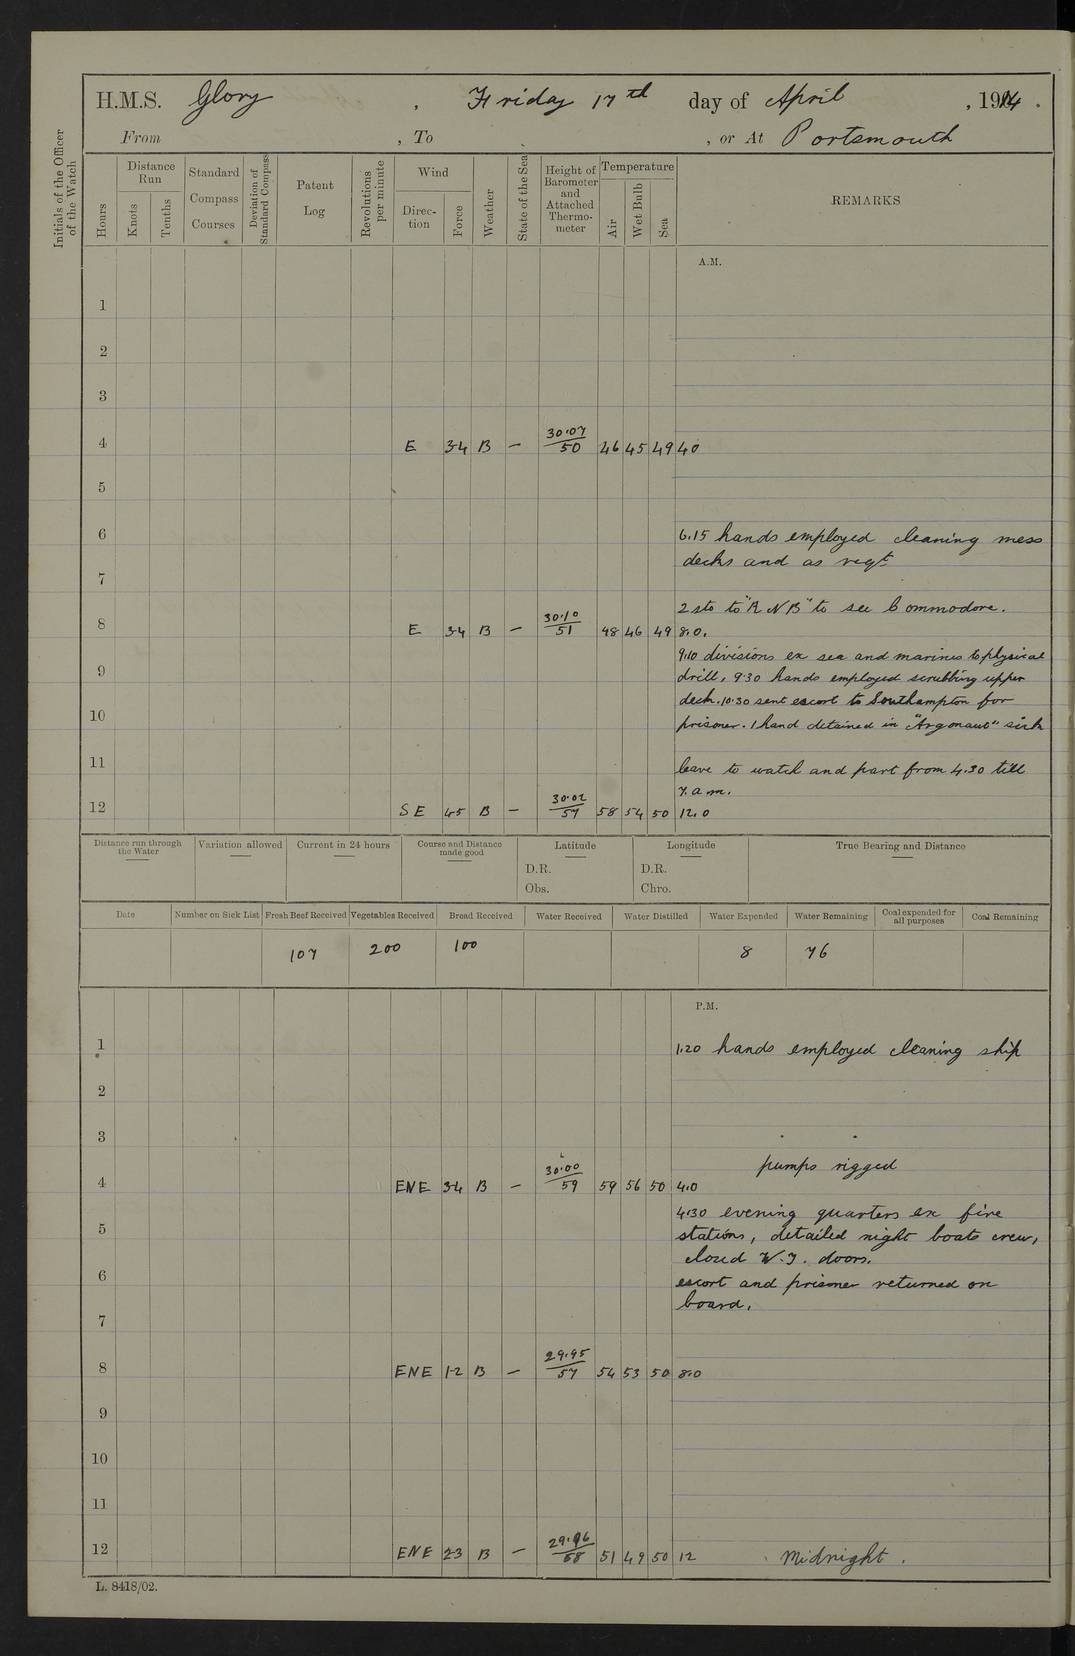 H.M.S. Glory, Friday 17th day of April, 1914.
From , To , or At Portsmouth
Initials of the Officer of the Watch
Hours
Distance Run
Knots
Tenths
Standard Compass Courses
Deviation of Standard Compass
Patent Log
Revolutions per minute
Wind
Direction
Force
Weather
State of the Sea
Height of Barometer and Attached Thermometer
Temperature
Air
Wet Bulb
Sea
REMARKS
A.M.
1
2
3
4 E 3-4 B — 30.07/50 46 45 49 4.0
5
6 6.15 hands employed cleaning mess
decks and as reqt
7
2 sto to "RNB" to see Commodore.
8 E 3-4 B — 30.10/51 48 46 49 8.0.
9.10 divisions ex sea and marines to physical
9 drill, 9.30 hands employed scrubbing upper
deck. 10.30 sent escort to Southampton for
10 prisoner. 1 hand detained in "Argonaut" sick
11 leave to watch and part from 4.30 till
7. a m.
12 SE 4-5 B — 30.02/57 58 54 50 12.0
Distance run through the Water
Variation allowed
Current in 24 hours
Course and Distance made good
Latitude
D.R.
Obs.
Longitude
D.R.
Chro.
True Bearing and Distance
Date
Number on Sick List
Fresh Beef Received
Vegetables Received
Bread Received
Water Received
Water Distilled
Water Expended
Water Remaining
Coal expended for all purposes
Coal Remaining
107 200 100 8 76
P.M.
1 1.20 hands employed cleaning ship
2
3
pumps rigged
4 ENE 3-4 B — 30.00/59 59 56 50 4.0
4.30 evening quarters ex fire
5 stations, detailed night boats crew,
closed W.T. doors.
6 escort and prisoner returned on
board.
7
8 ENE 1-2 B — 29.95/57 54 53 50 8.0
9
10
11
12 ENE 2-3 B — 29.96/58 51 49 50 12 Midnight.
L. 8418/02.